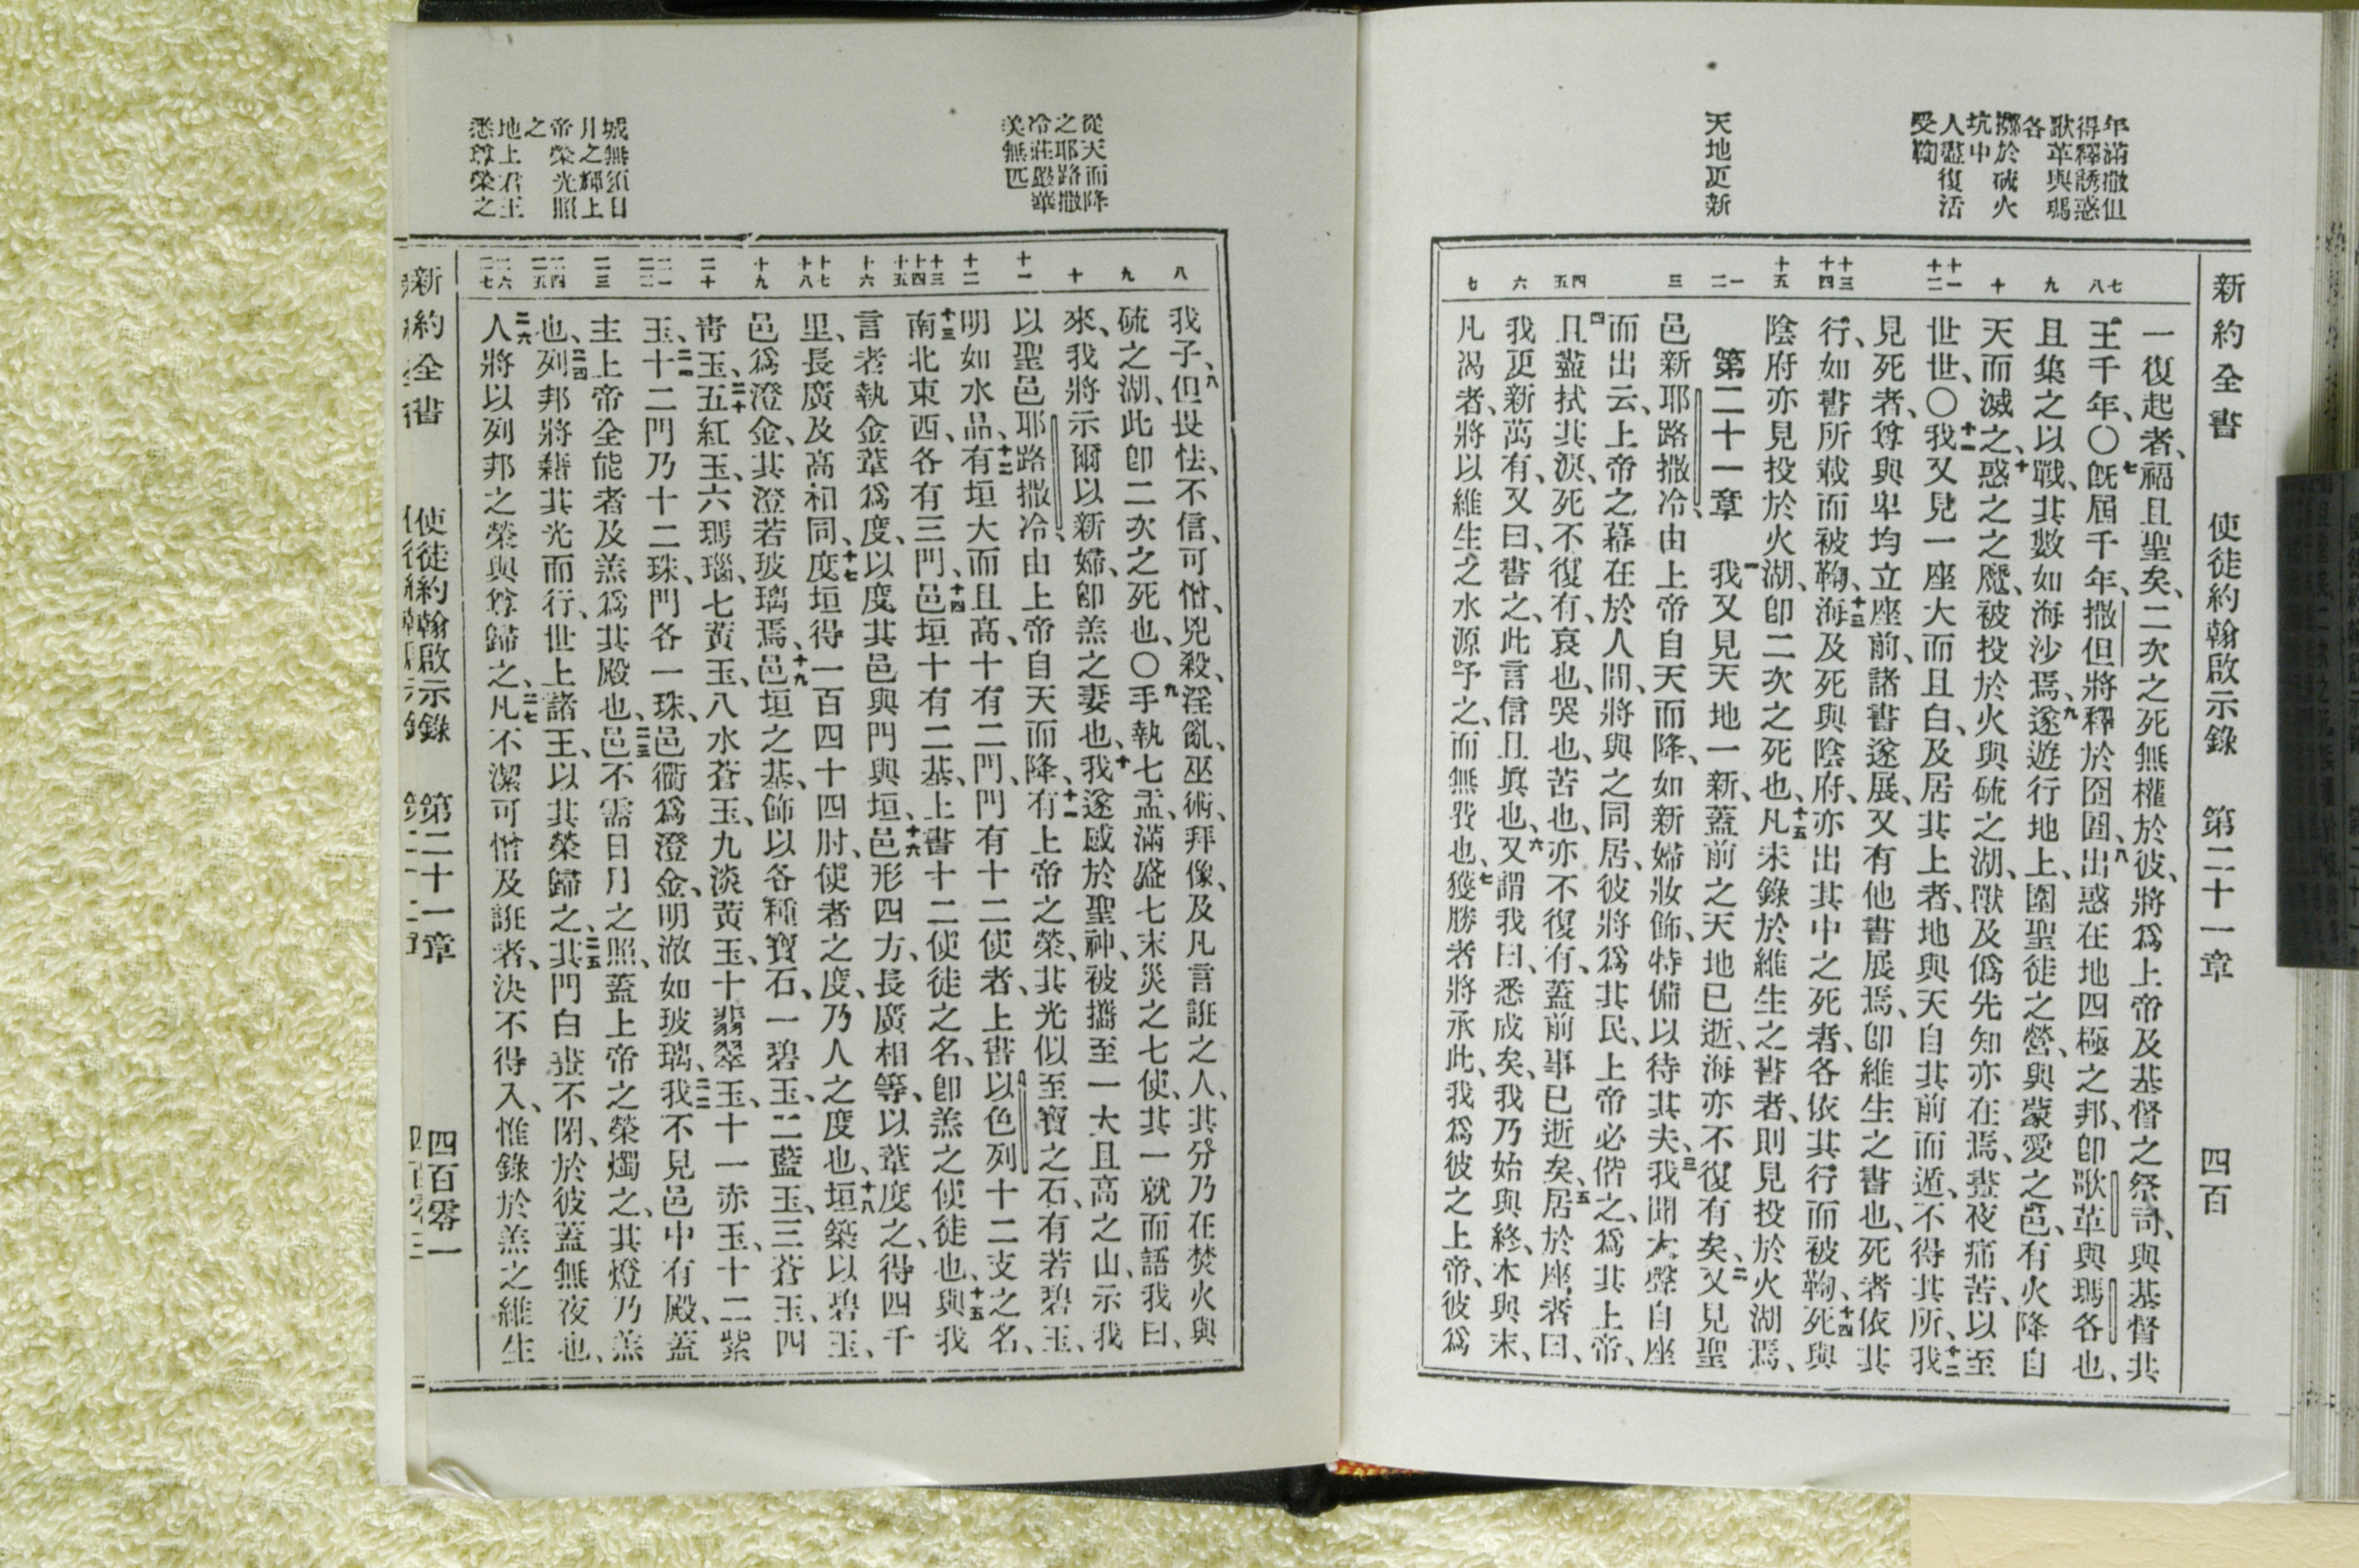 新約全書 使徒約翰啟示錄 第二十一章 四百
年滿撒但
得釋誘惑
歌革與瑪
各
擲於硫火
坑中
人盡復活
受鞫
天地更新
七
八
九
十
十一
十二
十三
十四
十五
一
二
三
四
五
六
七
一復起者、福且聖矣、二次之死無權於彼、將爲上帝及基督之祭司、與基督共
王千年、〇七旣屆千年、撒但將釋於囹圄、八出惑在地四極之邦、卽歌革與瑪各也、
且集之以戰、其數如海沙焉、九遂遊行地上、圍聖徒之營、與蒙愛之邑、有火降自
天而滅之、十惑之之魔、被投於火與硫之湖、獸及僞先知亦在焉、晝夜痛苦、以至
世世、〇十一我又見一座大而且白、及居其上者、地與天自其前而遁、不得其所、十二我
見死者、尊與卑均立座前、諸書遂展、又有他書展焉、卽維生之書也、死者依其
行、如書所載而被鞫、十三海及死與陰府、亦出其中之死者、各依其行而被鞫、十四死與
陰府亦見投於火湖、卽二次之死也、十五凡未錄於維生之書者、則見投於火湖焉、
第二十一章 一我又見天地一新、蓋前之天地已逝、海亦不復有矣、二又見聖
邑新耶路撒冷、由上帝自天而降、如新婦妝飾、特備以待其夫、三我聞大聲自座
而出云、上帝之幕在於人間、將與之同居、彼將爲其民、上帝必偕之、爲其上帝、
四且盡拭其淚、死不復有、哀也、哭也、苦也、亦不復有、蓋前事已逝矣、五居於座者曰、
我更新萬有、又曰、書之、此言信且眞也、六又謂我曰、悉成矣、我乃始與終、本與末、
凡渴者、將以維生之水源予之、而無費也、七獲勝者將承此、我爲彼之上帝、彼爲
從天而降
之耶路撒
冷莊嚴華
美無匹
城無須日
月之輝上
帝榮光照
之
地上君王
悉尊榮之
八
九
十
十一
十二
十三
十四
十五
十六
十七
十八
十九
二十
二一
二二
二三
二四
二五
二六
二七
我子、八但畏怯、不信、可憎、兇殺、淫亂、巫術、拜像、及凡言誑之人、其分乃在焚火與
硫之湖、此卽二次之死也、〇九手執七盂、滿盛七末災之七使、其一就而語我曰、
來、我將示爾以新婦、卽羔之妻也、十我遂感於聖神、被攜至一大且高之山、示我
以聖邑耶路撒冷、由上帝自天而降、十一有上帝之榮、其光似至寶之石、有若碧玉、
明如水晶、十二有垣大而且高、十有二門、門有十二使者、上書以色列十二支之名、
十三南北東西、各有三門、十四邑垣十有二基、上書十二使徒之名、卽羔之使徒也、十五與我
言者執金葦爲度、以度其邑與門與垣、十六邑形四方、長廣相等、以葦度之、得四千
里、長廣及高相同、十七度垣得一百四十四肘、使者之度、乃人之度也、十八垣築以碧玉、
邑爲澄金、其澄若玻璃焉、十九邑垣之基、飾以各種寶石、一碧玉、二藍玉、三蒼玉、四
靑玉、二十五紅玉、六瑪瑙、七黃玉、八水蒼玉、九淡黃玉、十翡翠玉、十一赤玉、十二紫
玉、二一十二門乃十二珠、門各一珠、邑衢爲澄金、明澈如玻璃、二二我不見邑中有殿、蓋
主上帝全能者及羔爲其殿也、二三邑不需日月之照、蓋上帝之榮燭之、其燈乃羔
也、二四列邦將藉其光而行、世上諸王、以其榮歸之、二五其門白晝不閉、於彼蓋無夜也、
二六人將以列邦之榮與尊歸之、二七凡不潔可憎及誑者、決不得入、惟錄於羔之維生
新約全書 使徒約翰啟示錄 第二十一章 四百零一